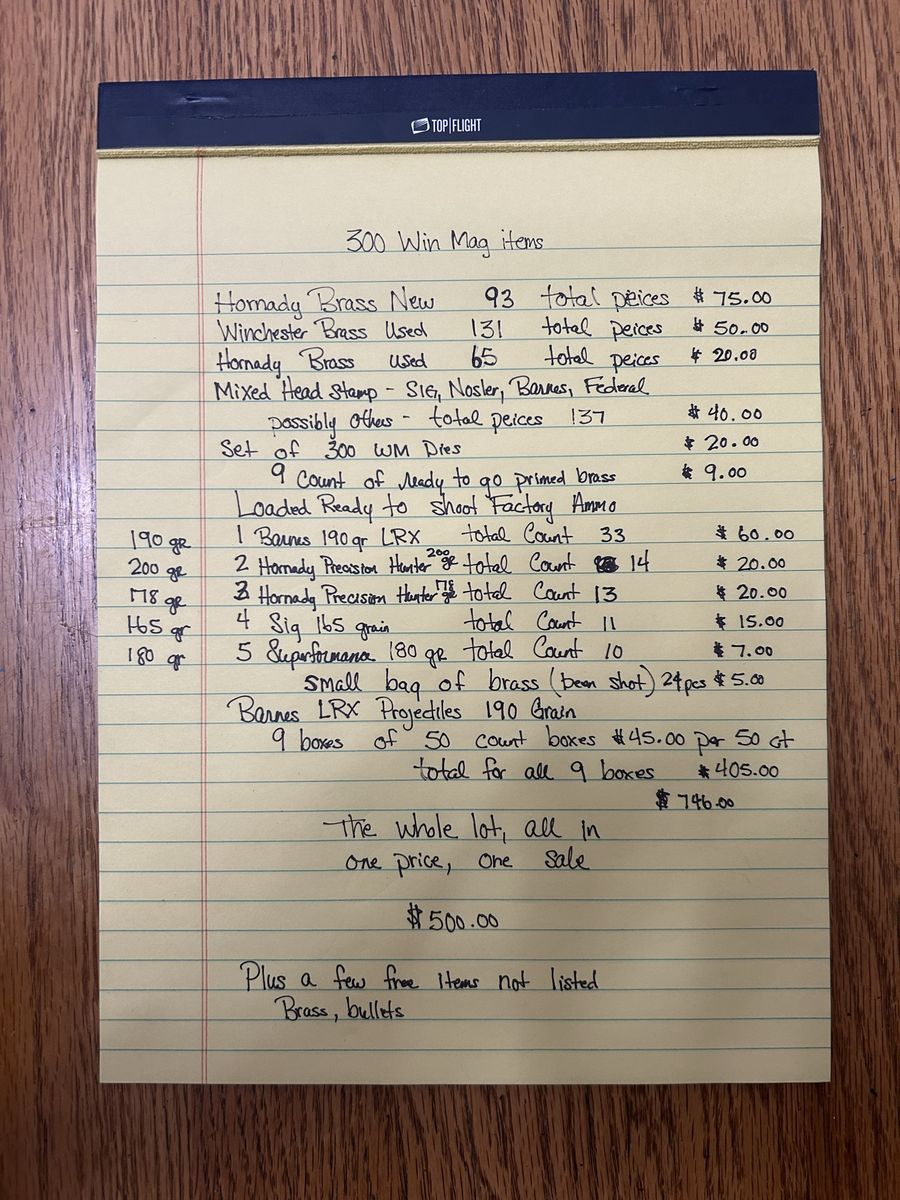 TOP|FLIGHT
300 Win Mag items
Hornady Brass New 93 total peices $ 75.00
Winchester Brass Used 131 total peices $ 50.00
Hornady Brass used 65 total peices $ 20.00
Mixed Head Stamp - SIG, Nosler, Barnes, Federal
possibly others - total peices 137 $ 40.00
Set of 300 WM Dies $ 20.00
9 Count of ready to go primed brass $ 9.00
Loaded Ready to shoot Factory Ammo
190 gr 1 Barnes 190 gr LRX total Count 33 $ 60.00
200 gr 2 Hornady Precision Hunter 200 gr total Count 14 $ 20.00
178 gr 3 Hornady Precision Hunter 178 gr total Count 13 $ 20.00
165 gr 4 Sig 165 grain total Count 11 $ 15.00
180 gr 5 Superformance 180 gr total Count 10 $ 7.00
small bag of brass (been shot) 24 pcs $ 5.00
Barnes LRX Projectiles 190 Grain
9 boxes of 50 count boxes $45.00 per 50 ct
total for all 9 boxes $405.00
$ 746.00
The whole lot, all in
one price, one sale
$500.00
Plus a few free items not listed
Brass, bullets